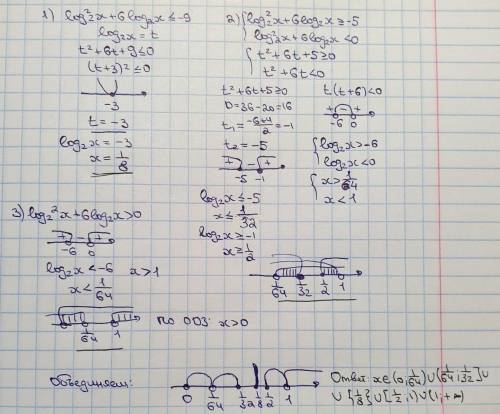 1) log₂²x+6log₂x≤-9
log₂x=t
t²+6t+9≤0
(t+3)²≤0
-3
t=-3
log₂x=-3
x=1/8
2) { log₂²x+6log₂x≥-5
log₂²x+6log₂x<0
{ t²+6t+5≥0
t²+6t<0
t²+6t+5≥0
D=36-20=16
t₁=(-6+4)/2=-1
t₂=-5
+ - +
-5 -1
log₂x≤-5
x≤1/32
log₂x≥-1
x≥1/2
t(t+6)<0
+ - +
-6 0
{ log₂x>-6
log₂x<0
{ x>1/64
x<1
1/64 1/32 1/2 1
3) log₂²x+6log₂x>0
+ - +
-6 0
log₂x<-6 x>1
x<1/64
1/64 1
по ОДЗ: x>0
Объединяем:
0 1/64 1/32 1/8 1/2 1
Ответ: x∈(0;1/64)∪(1/64;1/32]∪
∪{1/8}∪[1/2;1)∪(1;+∞)